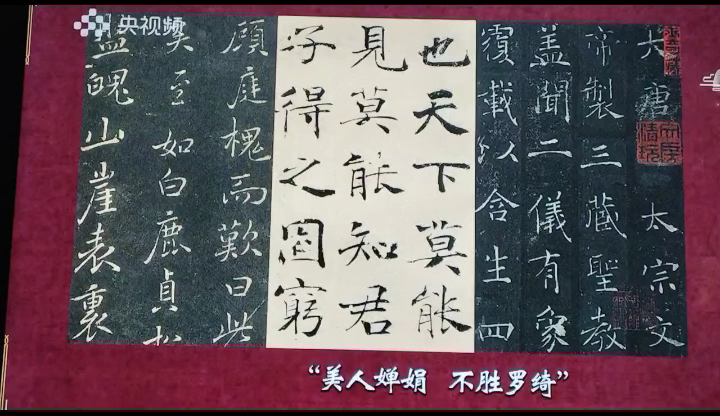 央视频
大唐太宗文
帝製三藏聖教
盖聞二儀有象
覆載以含生四
也天下莫能
見莫能知君
子得之固窮
顧庭槐而歎曰此
矣至如白鹿貞松
盤魄山崖表裏
“美人婵娟 不胜罗绮”